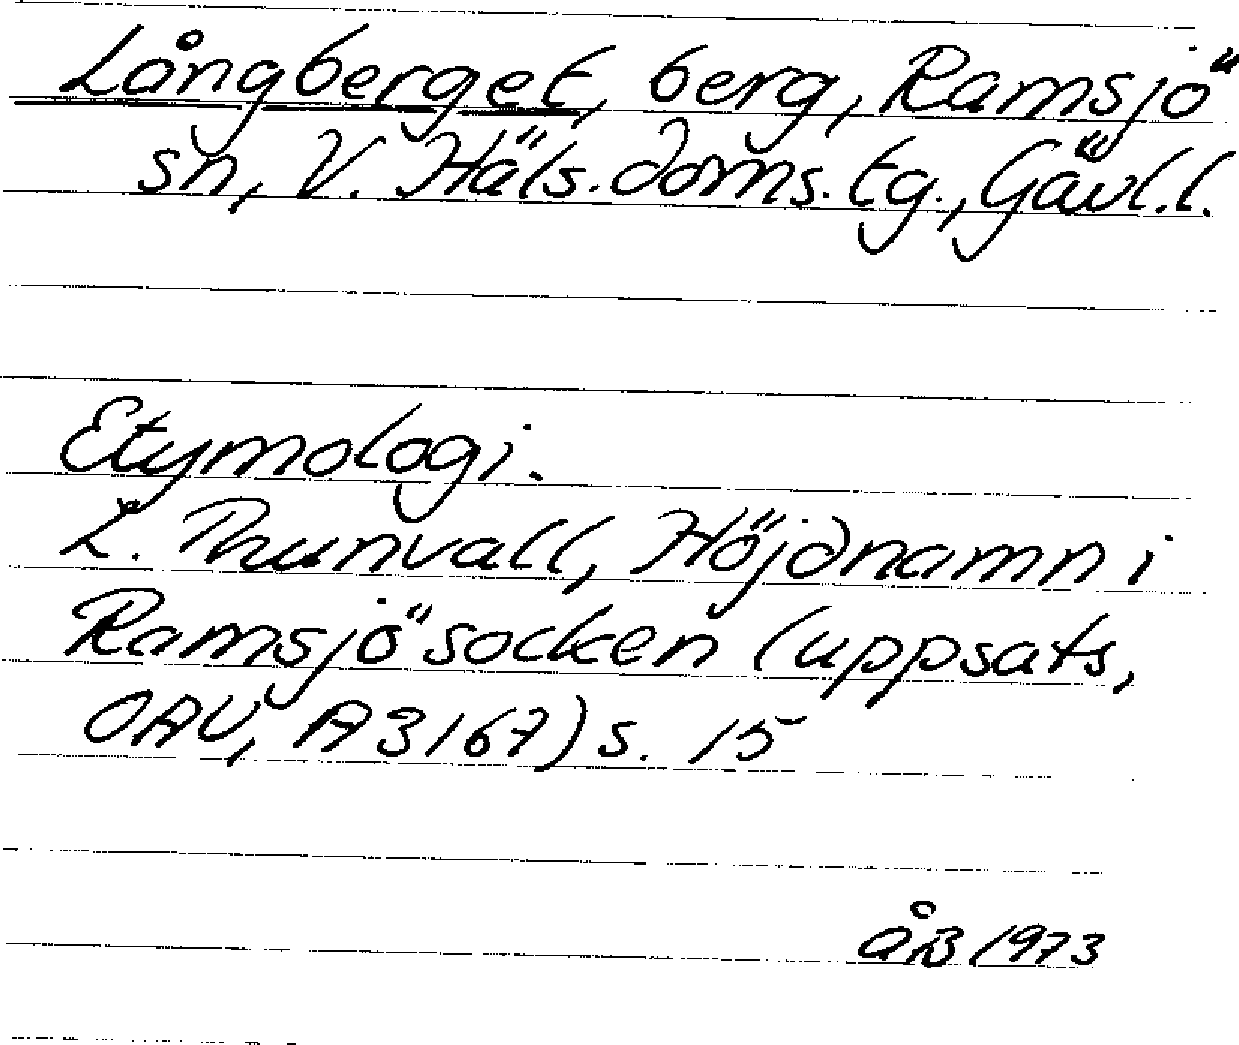 Långberget, berg, Ramsjö
sn, V. Häls. doms. tg., Gävl.l.
Etymologi.
L. Thunvall, Höjdnamn i
Ramsjö socken (uppsats,
OAU, A3167) s. 15
ÅB 1973